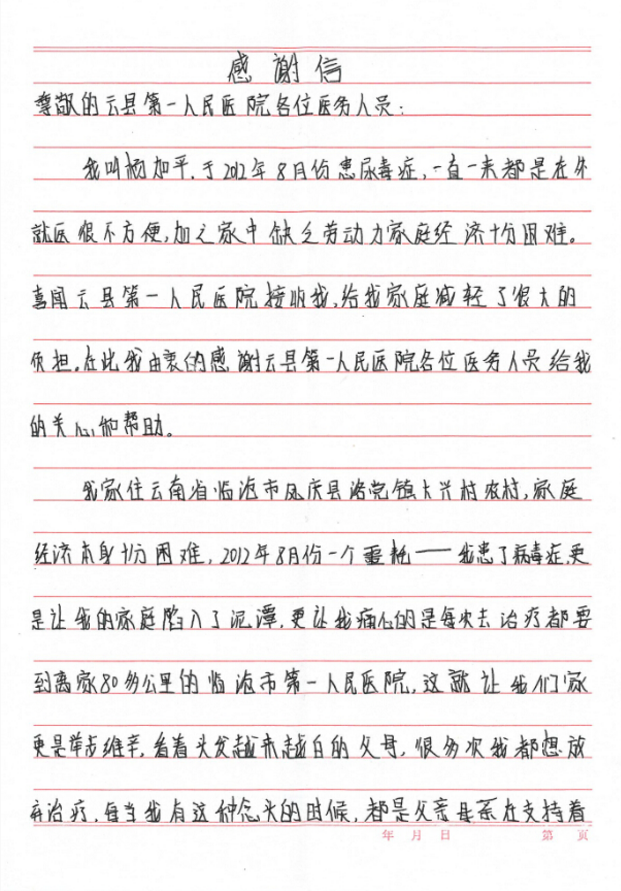 感谢信
尊敬的云县第一人民医院各位医务人员:
我叫杨加平,于2012年8月份患尿毒症,一直一来都是在外
就医很不方便,加之家中缺乏劳动力家庭经济十分困难。
喜闻云县第一人民医院接收我,给我家庭减轻了很大的
负担。在此我由衷的感谢云县第一人民医院各位医务人员给我
的关心和帮助。
我家住云南省临沧市凤庆县洛党镇大兴村农村,家庭
经济本身十分困难,2012年8月份一个噩耗——我患了病毒症,更
是让我的家庭陷入了泥潭,更让我痛心的是每次去治疗都要
到离家80多公里的临沧市第一人民医院,这就让我们家
更是举步维辛,看着头发越来越白的父母,很多次我都想放
弃治疗,每当我有这种念头的时候,都是父亲母亲在支持着
年 月 日 第 页